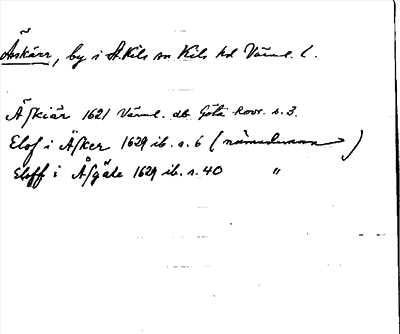 Åskärr, by i St. Kils sn Kils hd Värml. l.
Äskiär 1621 Värml. db Göta hovr. s. 3.
Elof i Äsker 1629 ib. s. 6 (nämndeman)
Eloff i Åsgäle 1629 ib. s. 40 "